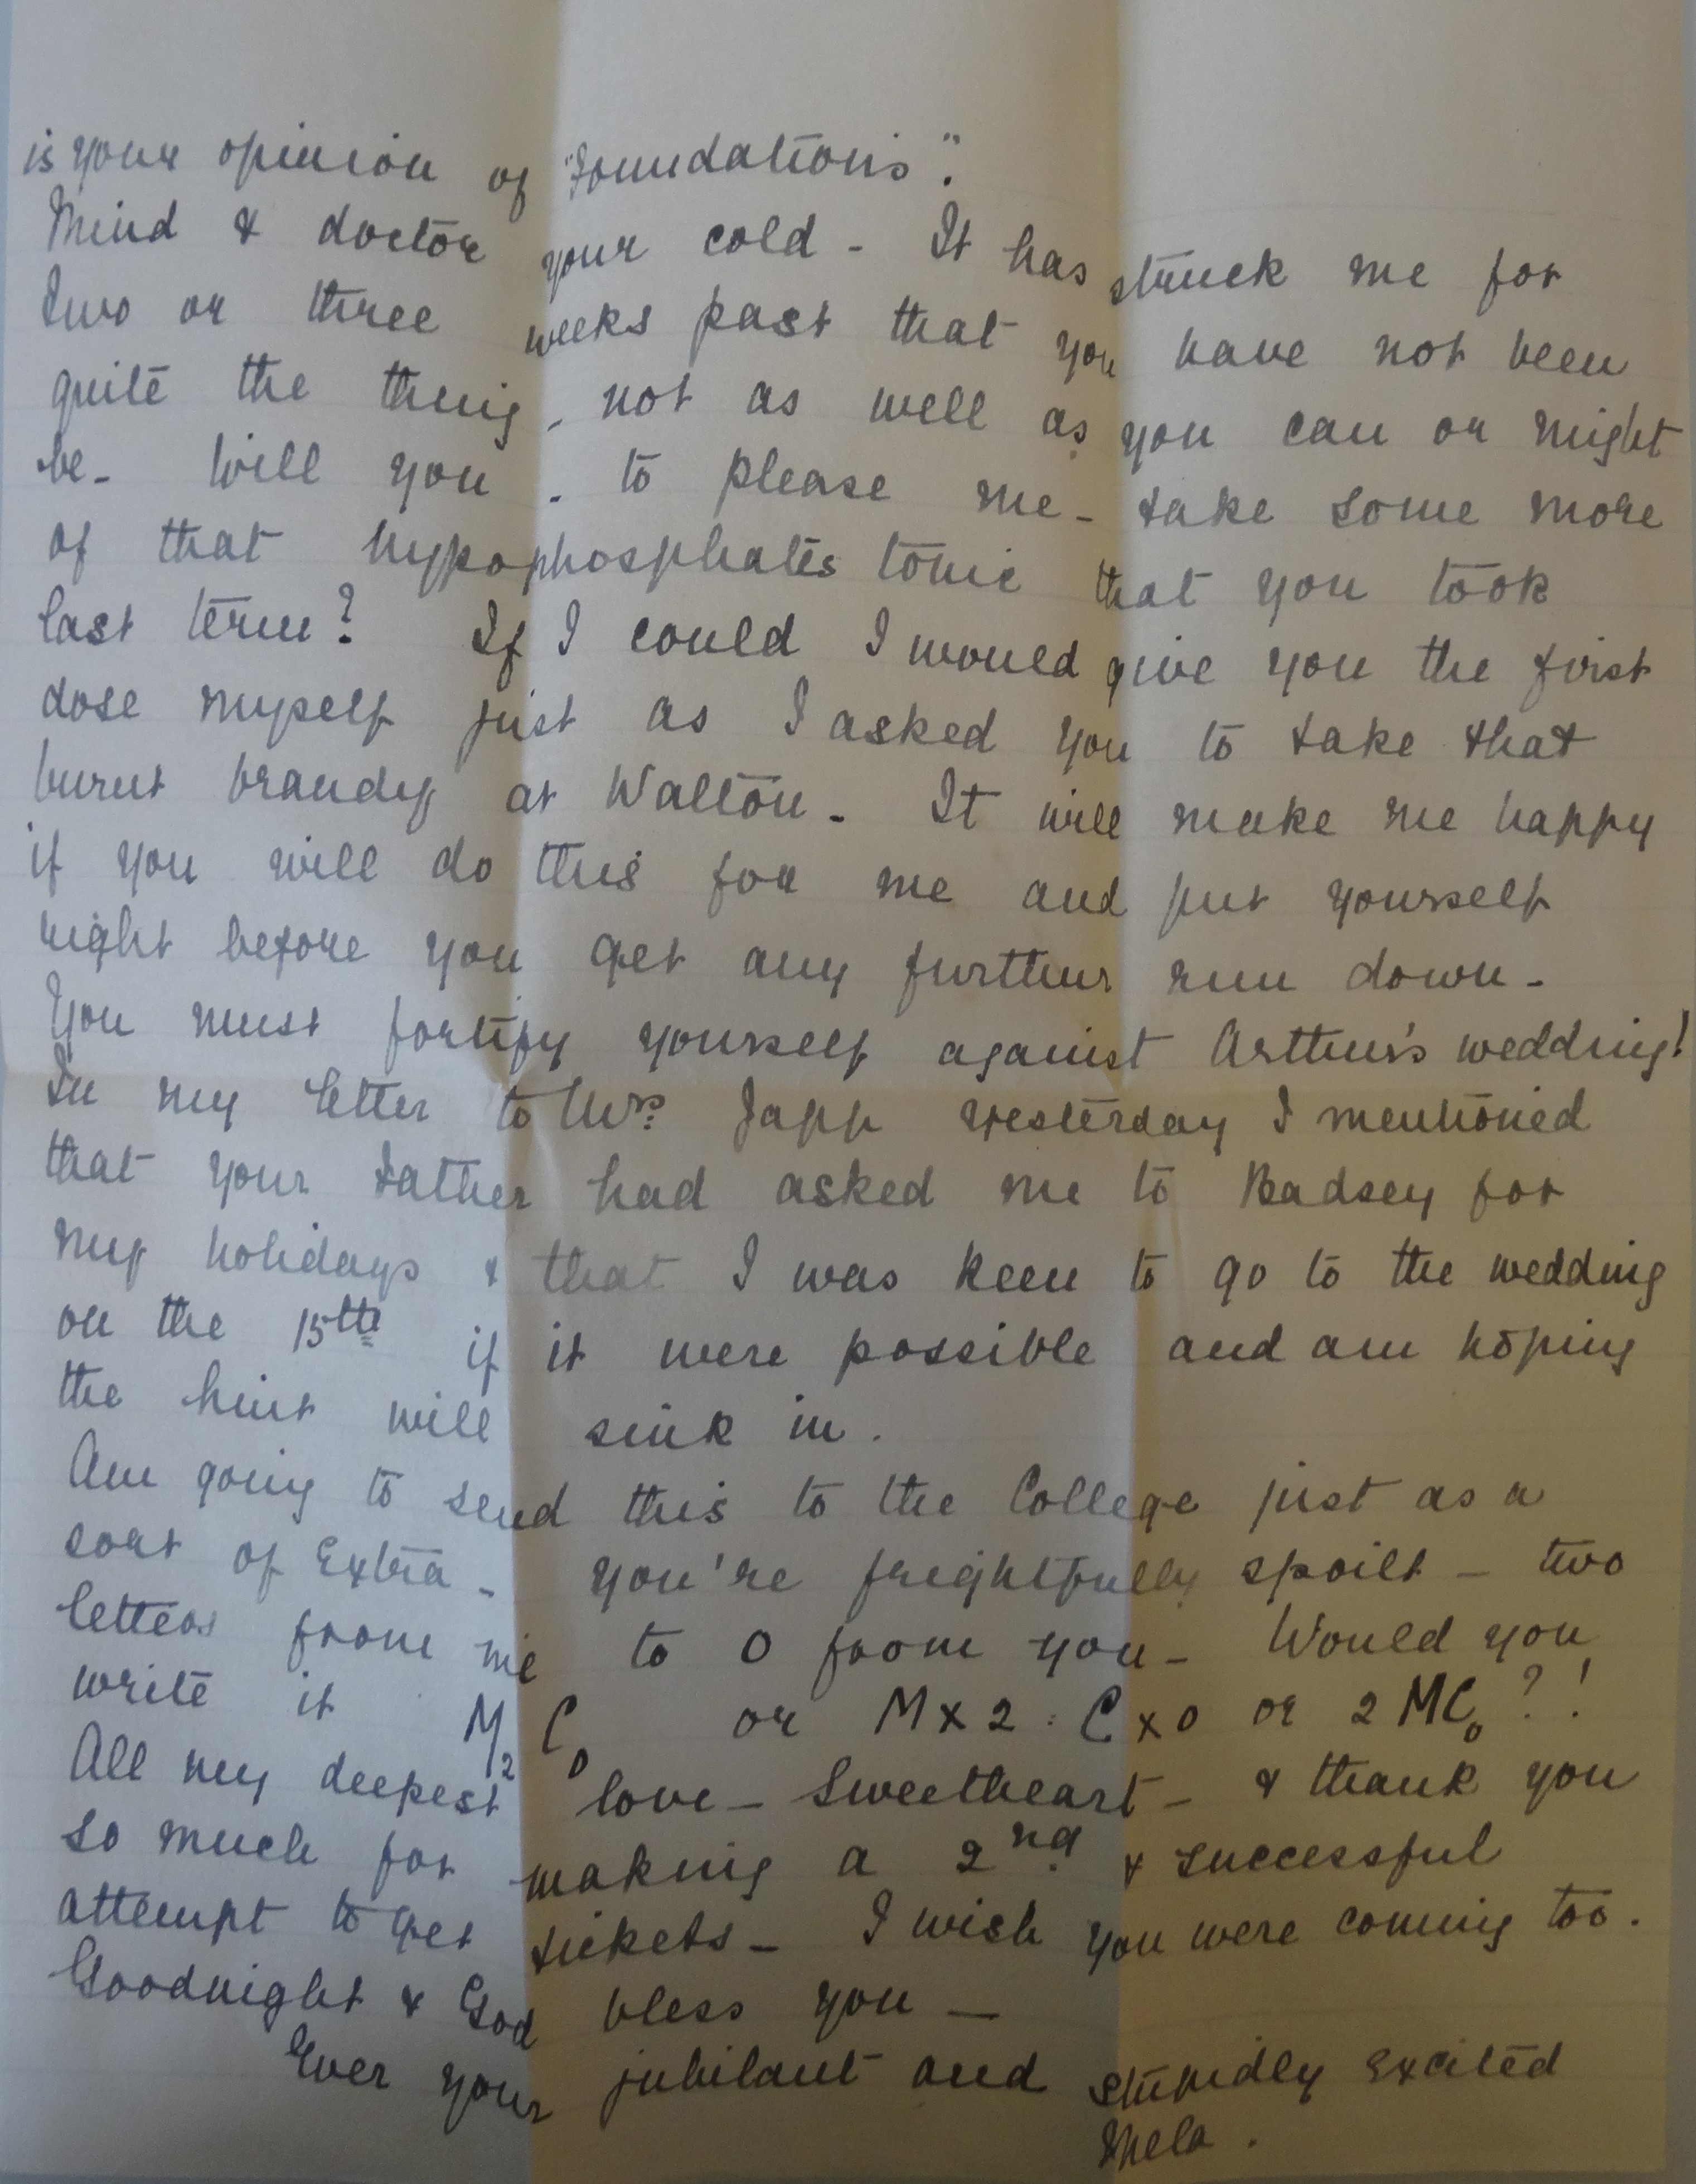 is your opinion of "Foundations".
Mind & doctor your cold - It has struck me for
two or three weeks past that you have not been
quite the thing - not as well as you can or might
be - Will you - to please me - take some more
of that hypophosphates tonic that you took
last term? If I could I would give you the first
dose myself just as I asked you to take that
burnt brandy at Walton - It will make me happy
if you will do this for me and put yourself
right before you get any further run down -
You must fortify yourself against Arthur's wedding!
In my letter to Mrs. Japp yesterday I mentioned
that your Father had asked me to Badsey for
my holidays & that I was keen to go to the wedding
on the 15th if it were possible and am hoping
the hint will sink in.
Am going to send this to the College just as a
sort of Extra - You're frightfully spoilt - two
letters from me to 0 from you - Would you
write it M2 C0 or M x 2 : C x 0 or 2 MC0 ? !
All my deepest love - Sweetheart - & thank you
so much for making a 2nd & successful
attempt to get tickets - I wish you were coming too.
Goodnight & God bless you -
Ever your jubilant and stupidly excited
Mela.